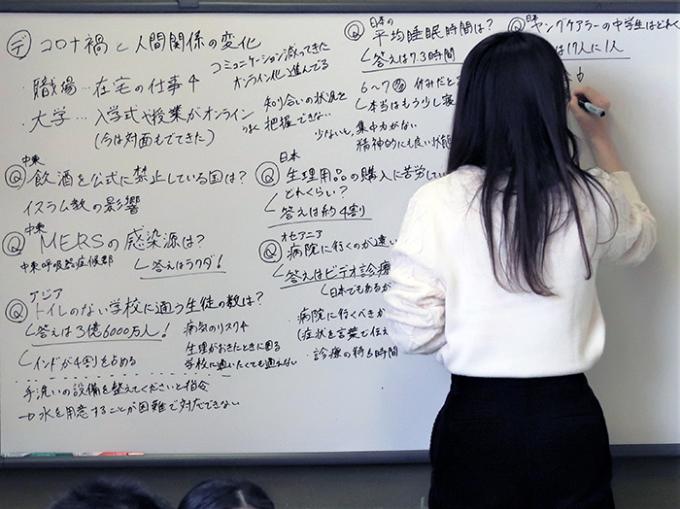 デ コロナ禍と人間関係の変化
コミュニケーション減ってきた
オンライン化進んでる
・職場…在宅の仕事↑
・大学…入学式や授業がオンライン
(今は対面もでてきた)
知り合いの状況を
把握できない
中東
Q 飲酒を公式に禁止している国は?
イスラム教の影響
中東
Q MERSの感染源は?
中東呼吸器症候群
答えはラクダ!
アジア
Q トイレのない学校に通う生徒の数は?
答えは3億6000万人!
インドが4割を占める
病気のリスク↑
生理がおきたときに困る
学校に通いたくても通えない
手洗いの設備を整えてくださいと指令
→水を用意することが困難で対応できない
日本の
Q 平均睡眠時間は?
答えは7.3時間
6〜7
本当はもう少し寝
少ないと、集中力がない
精神的にも良い状態
日本
Q 生理用品の購入に苦労してい
どれくらい?
答えは約4割
オセアニア
Q 病院に行くのが遠い
答えはビデオ診療
日本でもあるが
・病院に行くべきか
(症状を言葉で伝え
・診療の待ち時間
日本
Q ヤングケアラーの中学生はどれく
は17人に1人